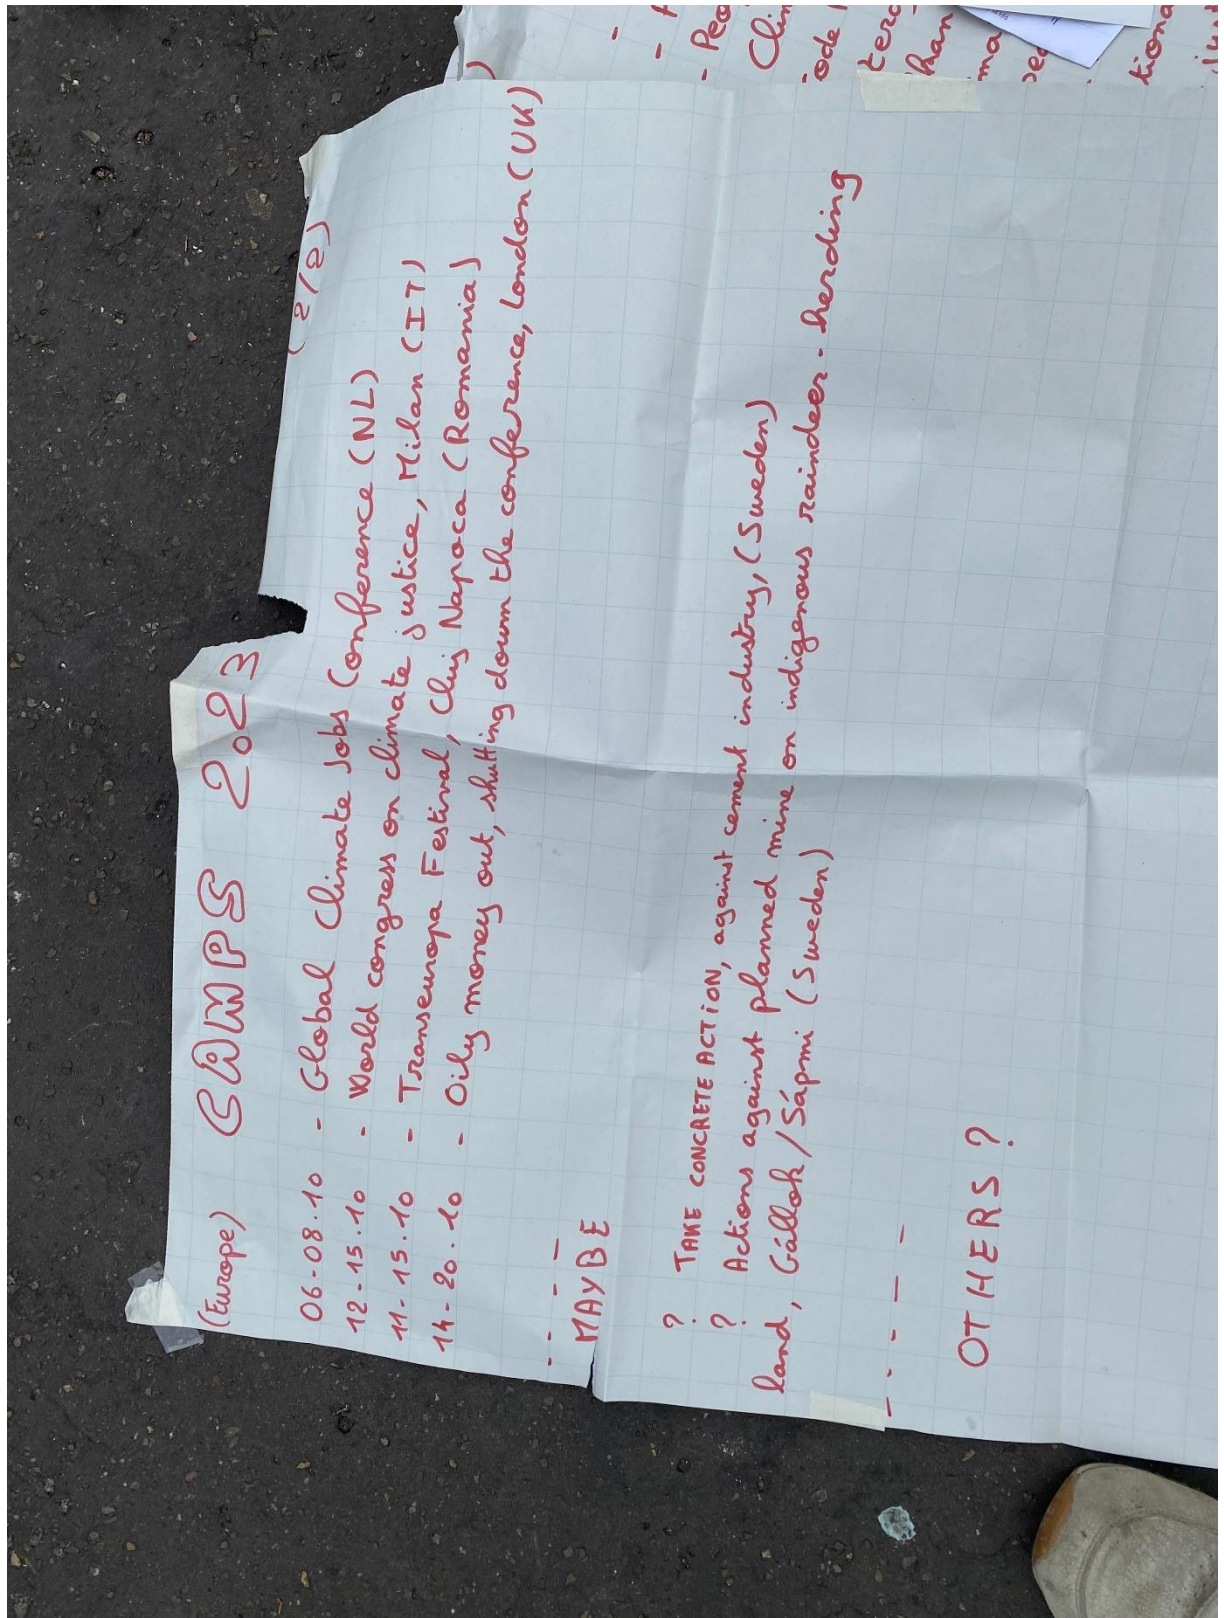 (Europe) CAMPS 2023 (2/2)
06-08.10 - Global Climate Jobs Conference (NL)
12-15.10 - World congress on climate justice, Milan (IT)
11-15.10 - Transeuropa Festival, Cluj Napoca (Romania)
14-20.10 - Oily money out, shutting down the conference, London (UK)
MAYBE
? TAKE CONCRETE ACTION, against cement industry, (Sweden)
? Actions against planned mine on indigenous raindeer-herding
land, Gállok/Sápmi (Sweden)
OTHERS ?